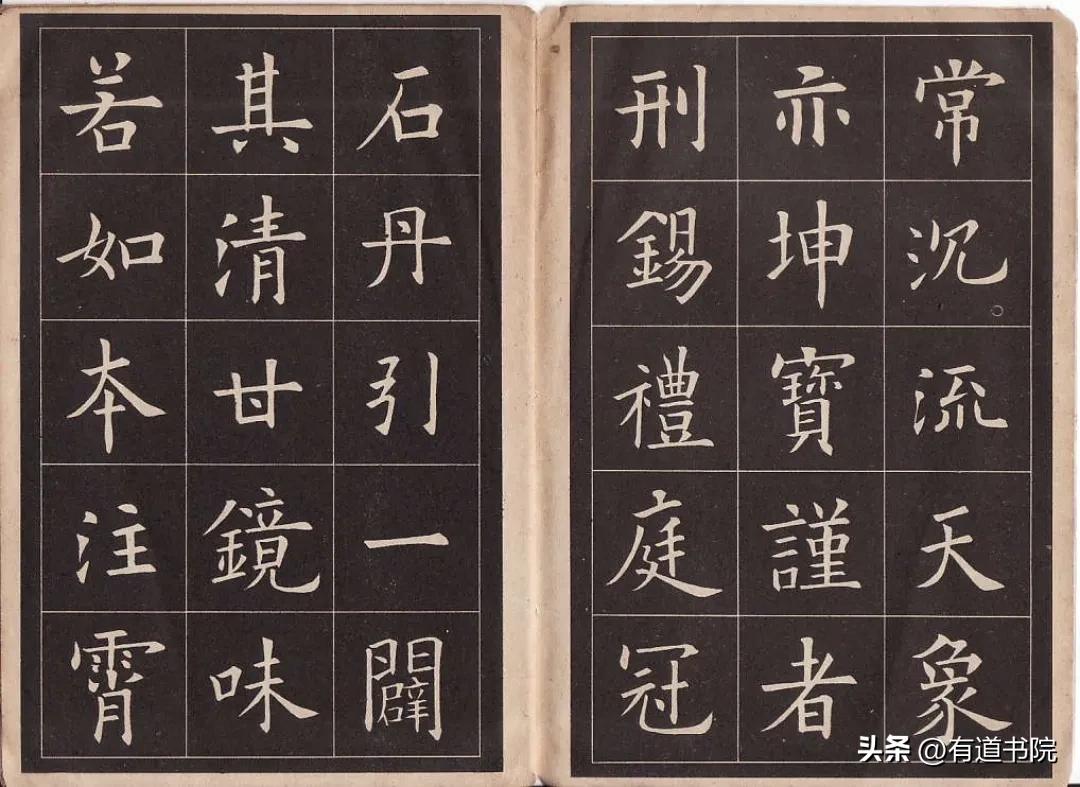 常沉流天象
亦坤寶謹者
刑錫禮庭冠
石丹引一闢
其清甘鏡味
若如本注霄
头条 @有道书院